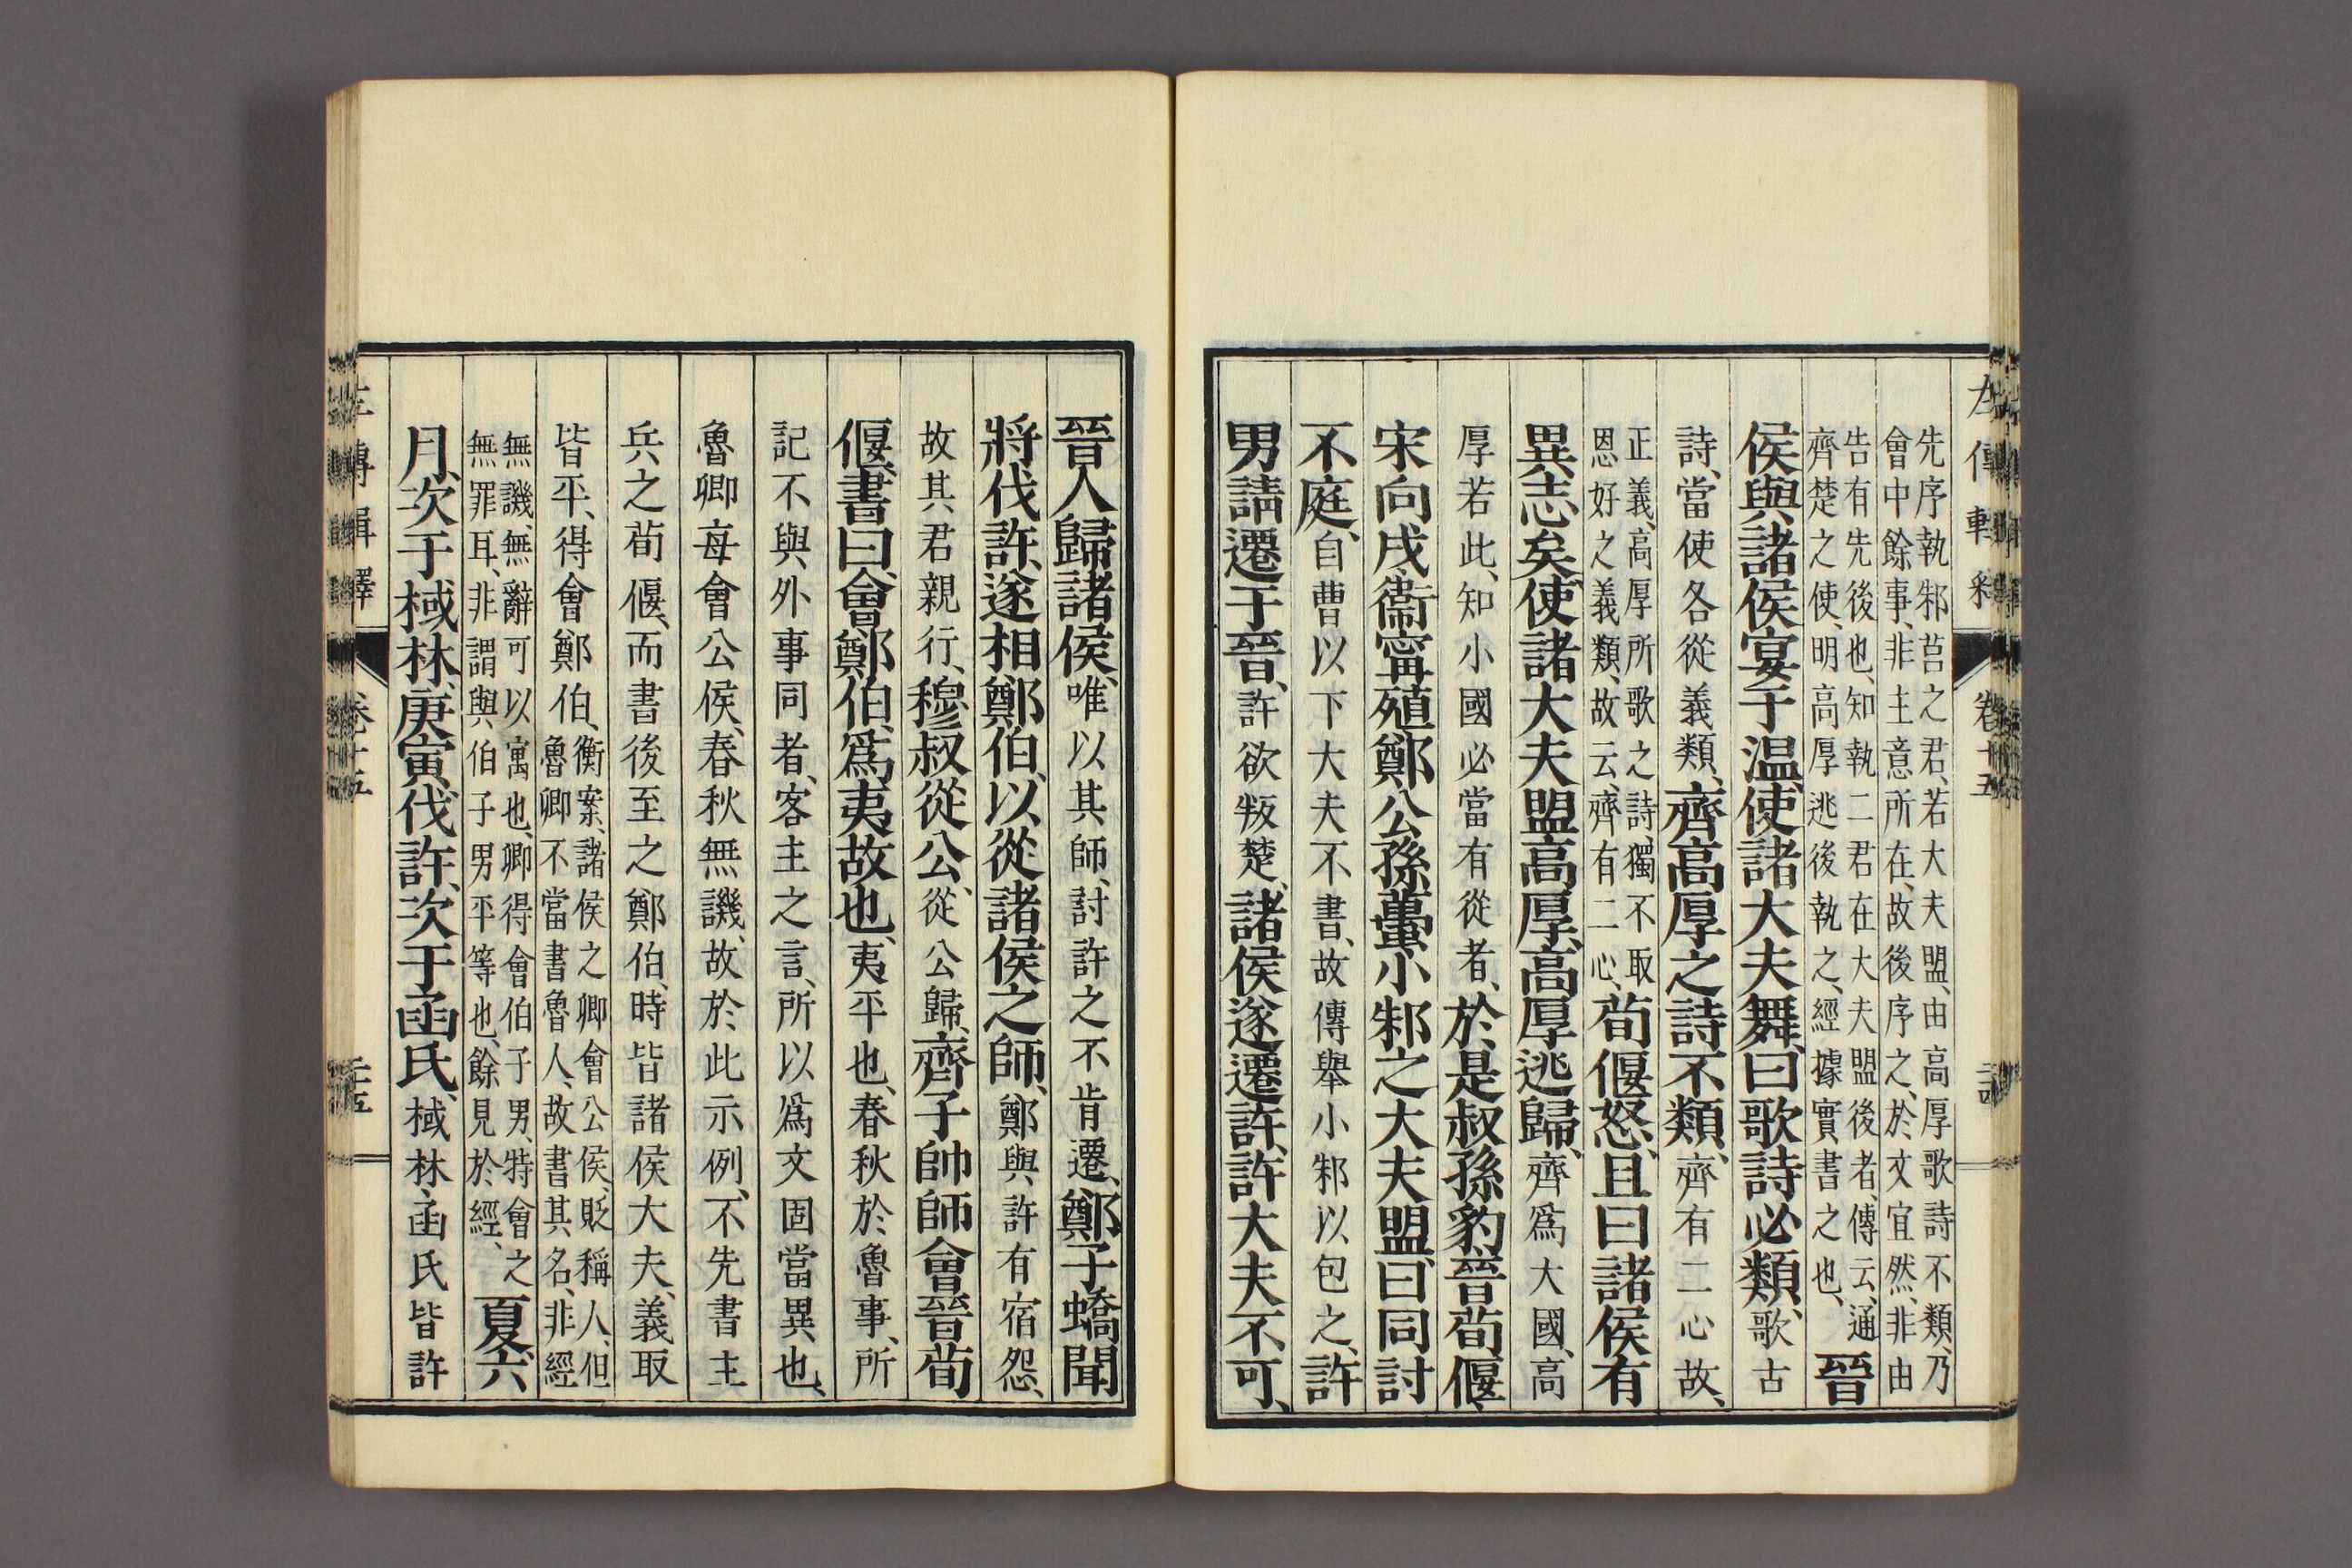 左傳輯釋 卷十五
先序執邾莒之君、若大夫盟、由高厚歌詩不類、乃
會中餘事、非主意所在、故後序之、於文宜然、非由
告有先後也、知執二君在大夫盟後者、傳云、通
齊楚之使、明高厚逃後執之、經據實書之也、晉
侯與諸侯宴于温、使諸大夫舞、曰歌詩必類、歌古
詩、當使各從義類、齊高厚之詩不類、齊有二心故、
正義、高厚所歌之詩、獨不取
恩好之義類、故云、齊有二心、荀偃怒、且曰諸侯有
異志矣、使諸大夫盟高厚、高厚逃歸、齊爲大國、高
厚若此、知小國必當有從者、於是叔孫豹晉荀偃、
宋向戌、衞甯殖、鄭公孫蠆、小邾之大夫盟、曰同討
不庭、自曹以下大夫不書、故傳舉小邾以包之、許
男請遷于晉、許欲叛楚、諸侯遂遷許、許大夫不可、
晉人歸諸侯、唯以其師、討許之不肯遷、鄭子蟜聞
將伐許、遂相鄭伯、以從諸侯之師、鄭與許有宿怨、
故其君親行、穆叔從公、從公歸、齊子帥師會晉荀
偃、書曰、會鄭伯、爲夷故也、夷平也、春秋於魯事、所
記不與外事同者、客主之言、所以爲文固當異也、
魯卿每會公侯、春秋無譏、故於此示例、不先書主
兵之荀偃、而書後至之鄭伯、時皆諸侯大夫、義取
皆平、得會鄭伯、衡案、諸侯之卿會公侯、貶稱人、但
魯卿不當書魯人、故書其名、非經
無譏、無辭可以寓也、卿得會伯子男、特會之
無罪耳、非謂與伯子男平等也、餘見於經、夏六
月、次于棫林、庚寅、伐許、次于函氏、棫林、函氏皆許
左傳輯釋 卷十五 二十五